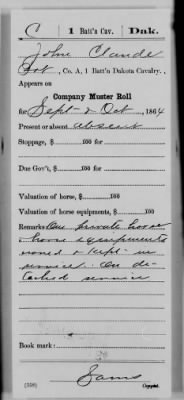 C 1 Batt'n Cav. Dak.
John Claude
Pvt, Co. A, 1 Batt'n Dakota Cavalry.
Appears on
Company Muster Roll
for Sept & Oct, 1864
Present or absent absent
Stoppage, $ 100 for
Due Gov't, $ 100 for
Valuation of horse, $ 100
Valuation of horse equipments, $ 100
Remarks: One private horse &
horse equipments
owned & kept in
service. On de-
tached service
Book mark:
(358) Copyist.